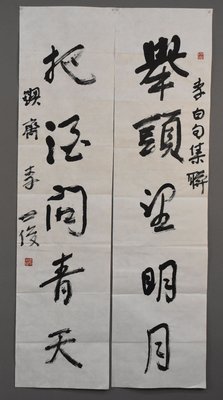 李白句集聯
舉頭望明月
把酒問青天
齋 李 俊